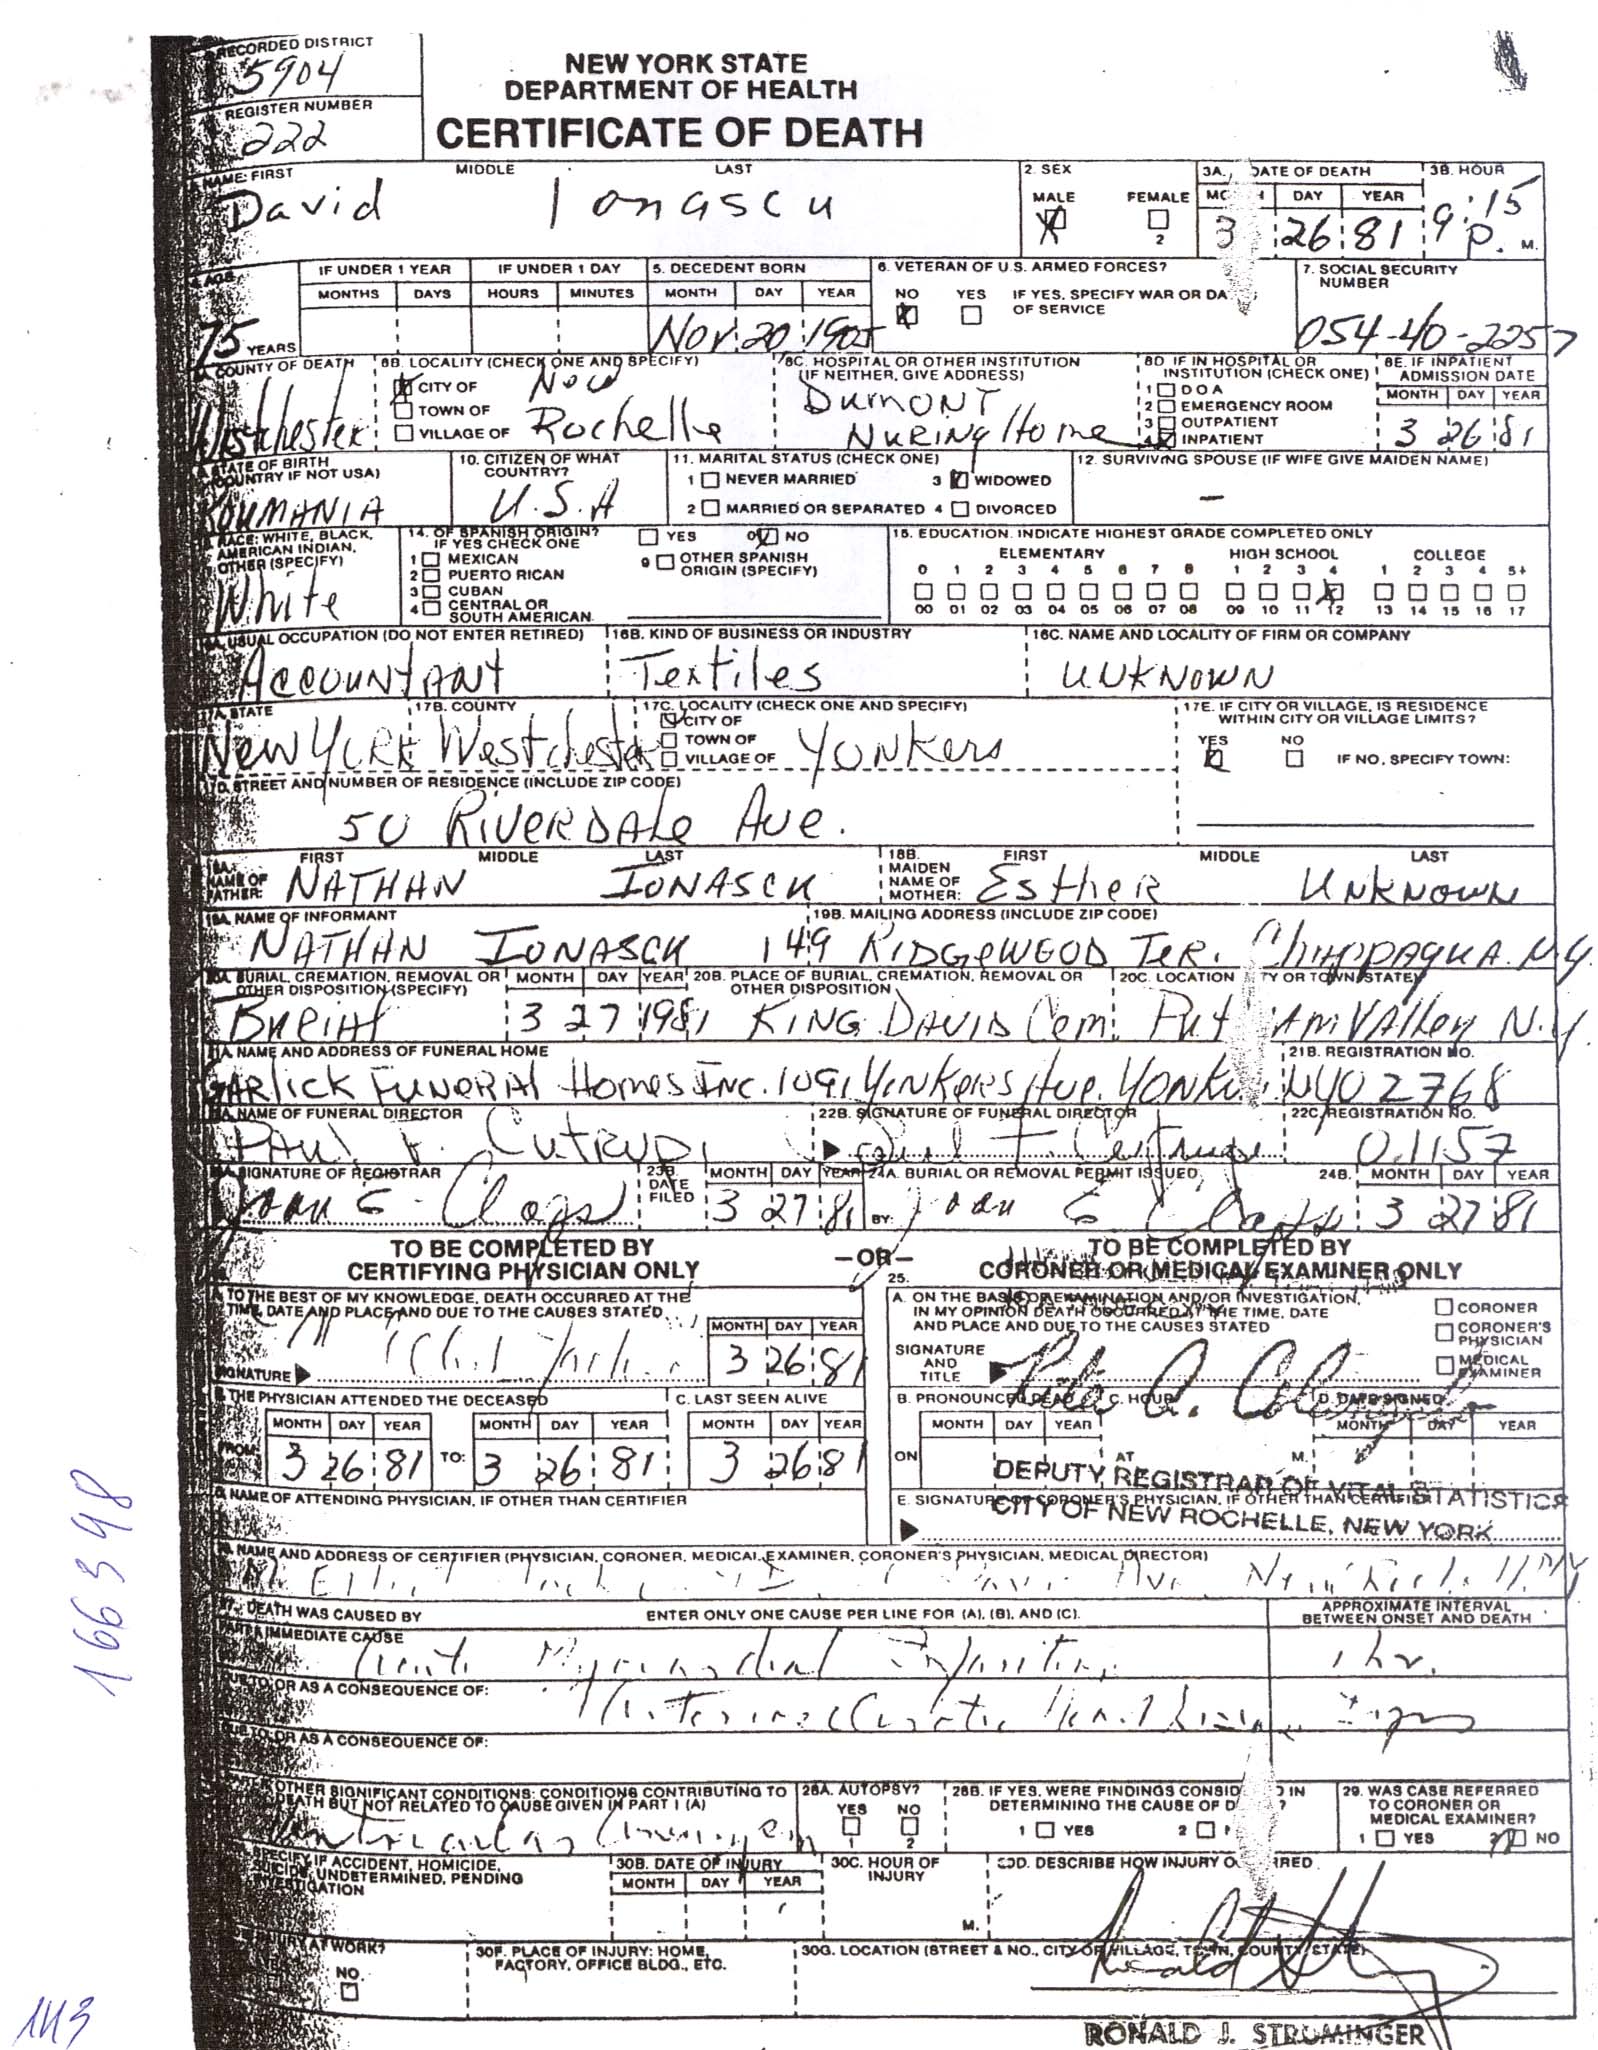 RECORDED DISTRICT
5904
REGISTER NUMBER
222
NEW YORK STATE
DEPARTMENT OF HEALTH
CERTIFICATE OF DEATH
NAME: FIRST MIDDLE LAST
David Ionascu
2. SEX
MALE FEMALE
2
3A. DATE OF DEATH
DAY YEAR
3 26 81
3B. HOUR
9:15
P. M.
AGE
75 YEARS
IF UNDER 1 YEAR
MONTHS DAYS
IF UNDER 1 DAY
HOURS MINUTES
5. DECEDENT BORN
MONTH DAY YEAR
Nov. 20 1905
6. VETERAN OF U.S. ARMED FORCES?
NO YES IF YES, SPECIFY WAR OR
OF SERVICE
7. SOCIAL SECURITY
NUMBER
054-40-2257
COUNTY OF DEATH
Westchester
8B. LOCALITY (CHECK ONE AND SPECIFY)
CITY OF New
TOWN OF
VILLAGE OF Rochelle
8C. HOSPITAL OR OTHER INSTITUTION
(IF NEITHER, GIVE ADDRESS)
Dumont
Nuring Home
8D IF IN HOSPITAL OR
INSTITUTION (CHECK ONE)
1 DOA
2 EMERGENCY ROOM
3 OUTPATIENT
4 INPATIENT
8E. IF INPATIENT
ADMISSION DATE
MONTH DAY YEAR
3 26 81
STATE OF BIRTH
COUNTRY IF NOT USA)
ROUMANIA
10. CITIZEN OF WHAT
COUNTRY?
U.S.A
11. MARITAL STATUS (CHECK ONE)
1 NEVER MARRIED 3 WIDOWED
2 MARRIED OR SEPARATED 4 DIVORCED
12. SURVIVING SPOUSE (IF WIFE GIVE MAIDEN NAME)
–
RACE: WHITE, BLACK,
AMERICAN INDIAN,
OTHER (SPECIFY)
White
14. OF SPANISH ORIGIN?
IF YES CHECK ONE
YES 0 NO
1 MEXICAN
2 PUERTO RICAN
3 CUBAN
4 CENTRAL OR
SOUTH AMERICAN
9 OTHER SPANISH
ORIGIN (SPECIFY)
15. EDUCATION. INDICATE HIGHEST GRADE COMPLETED ONLY
ELEMENTARY HIGH SCHOOL COLLEGE
0 1 2 3 4 5 6 7 8 1 2 3 4 1 2 3 4 5+
00 01 02 03 04 05 06 07 08 09 10 11 12 13 14 15 16 17
16A. USUAL OCCUPATION (DO NOT ENTER RETIRED)
Accountant
16B. KIND OF BUSINESS OR INDUSTRY
Textiles
16C. NAME AND LOCALITY OF FIRM OR COMPANY
UNKNOWN
17A. STATE
New York
17B. COUNTY
Westchester
17C. LOCALITY (CHECK ONE AND SPECIFY)
CITY OF
TOWN OF
VILLAGE OF Yonkers
17E. IF CITY OR VILLAGE, IS RESIDENCE
WITHIN CITY OR VILLAGE LIMITS?
YES NO
IF NO, SPECIFY TOWN:
17D. STREET AND NUMBER OF RESIDENCE (INCLUDE ZIP CODE)
50 Riverdale Ave.
18A.
NAME OF
FATHER:
FIRST MIDDLE LAST
NATHAN IONASCU
18B.
MAIDEN
NAME OF
MOTHER:
FIRST MIDDLE LAST
Esther Unknown
19A. NAME OF INFORMANT
NATHAN IONASCU
19B. MAILING ADDRESS (INCLUDE ZIP CODE)
149 RIDGEWOOD TER. Chappaqua N.Y.
20A. BURIAL, CREMATION, REMOVAL OR
OTHER DISPOSITION (SPECIFY)
Burial
MONTH DAY YEAR
3 27 1981
20B. PLACE OF BURIAL, CREMATION, REMOVAL OR
OTHER DISPOSITION
KING DAVID Cem.
20C. LOCATION TY OR TOWN, STATE)
Put am Valley N.Y.
21A. NAME AND ADDRESS OF FUNERAL HOME
Garlick Funeral Homes Inc. 1091 Yonkers Ave. Yonk
21B. REGISTRATION NO.
02768
NAME OF FUNERAL DIRECTOR
Paul F. Cutrupi
22B. SIGNATURE OF FUNERAL DIRECTOR
Paul F. Cutrupi
22C. REGISTRATION NO.
01157
SIGNATURE OF REGISTRAR
23B.
DATE
FILED
MONTH DAY YEAR
3 27 81
24A. BURIAL OR REMOVAL PERMIT ISSUED
BY:
24B. MONTH DAY YEAR
3 27 81
TO BE COMPLETED BY
CERTIFYING PHYSICIAN ONLY
—OR—
TO BE COMPLETED BY
CORONER OR MEDICAL EXAMINER ONLY
A. TO THE BEST OF MY KNOWLEDGE, DEATH OCCURRED AT THE
TIME, DATE AND PLACE AND DUE TO THE CAUSES STATED
SIGNATURE
MONTH DAY YEAR
3 26 81
25.
A. ON THE BASIS OF EXAMINATION AND/OR INVESTIGATION,
IN MY OPINION DEATH OCCURRED AT THE TIME, DATE
AND PLACE AND DUE TO THE CAUSES STATED
SIGNATURE
AND
TITLE
CORONER
CORONER'S
PHYSICIAN
MEDICAL
EXAMINER
B. THE PHYSICIAN ATTENDED THE DECEASED
MONTH DAY YEAR MONTH DAY YEAR
FROM: 3 26 81 TO: 3 26 81
C. LAST SEEN ALIVE
MONTH DAY YEAR
3 26 81
B. PRONOUNCED DEAD C. HOUR D. DATE SIGNED
MONTH DAY YEAR MONTH DAY YEAR
ON AT M.
DEPUTY REGISTRAR OF VITAL STATISTICS
CITY OF NEW ROCHELLE, NEW YORK
D. NAME OF ATTENDING PHYSICIAN, IF OTHER THAN CERTIFIER
E. SIGNATURE OF CORONER'S PHYSICIAN, IF OTHER THAN CERTIFIER
NAME AND ADDRESS OF CERTIFIER (PHYSICIAN, CORONER, MEDICAL EXAMINER, CORONER'S PHYSICIAN, MEDICAL DIRECTOR)
27. DEATH WAS CAUSED BY ENTER ONLY ONE CAUSE PER LINE FOR (A), (B), AND (C).
APPROXIMATE INTERVAL
BETWEEN ONSET AND DEATH
PART I IMMEDIATE CAUSE
Acute Myocardial Infarction 1 hr.
DUE TO, OR AS A CONSEQUENCE OF:
Arteriosclerotic Heart Disease
DUE TO, OR AS A CONSEQUENCE OF:
OTHER SIGNIFICANT CONDITIONS: CONDITIONS CONTRIBUTING TO
DEATH BUT NOT RELATED TO CAUSE GIVEN IN PART I (A)
Ventricular
28A. AUTOPSY?
YES NO
1 2
28B. IF YES, WERE FINDINGS CONSID D IN
DETERMINING THE CAUSE OF D ?
1 YES 2
29. WAS CASE REFERRED
TO CORONER OR
MEDICAL EXAMINER?
1 YES 2 NO
SPECIFY IF ACCIDENT, HOMICIDE,
SUICIDE, UNDETERMINED, PENDING
INVESTIGATION
30B. DATE OF INJURY
MONTH DAY YEAR
30C. HOUR OF
INJURY
M.
30D. DESCRIBE HOW INJURY O RRED
INJURY AT WORK?
NO.
30F. PLACE OF INJURY: HOME,
FACTORY, OFFICE BLDG., ETC.
30G. LOCATION (STREET & NO., CITY OR VILLAGE, TOWN, COUNTY, STATE)
RONALD J. STRUMINGER
166398
1113